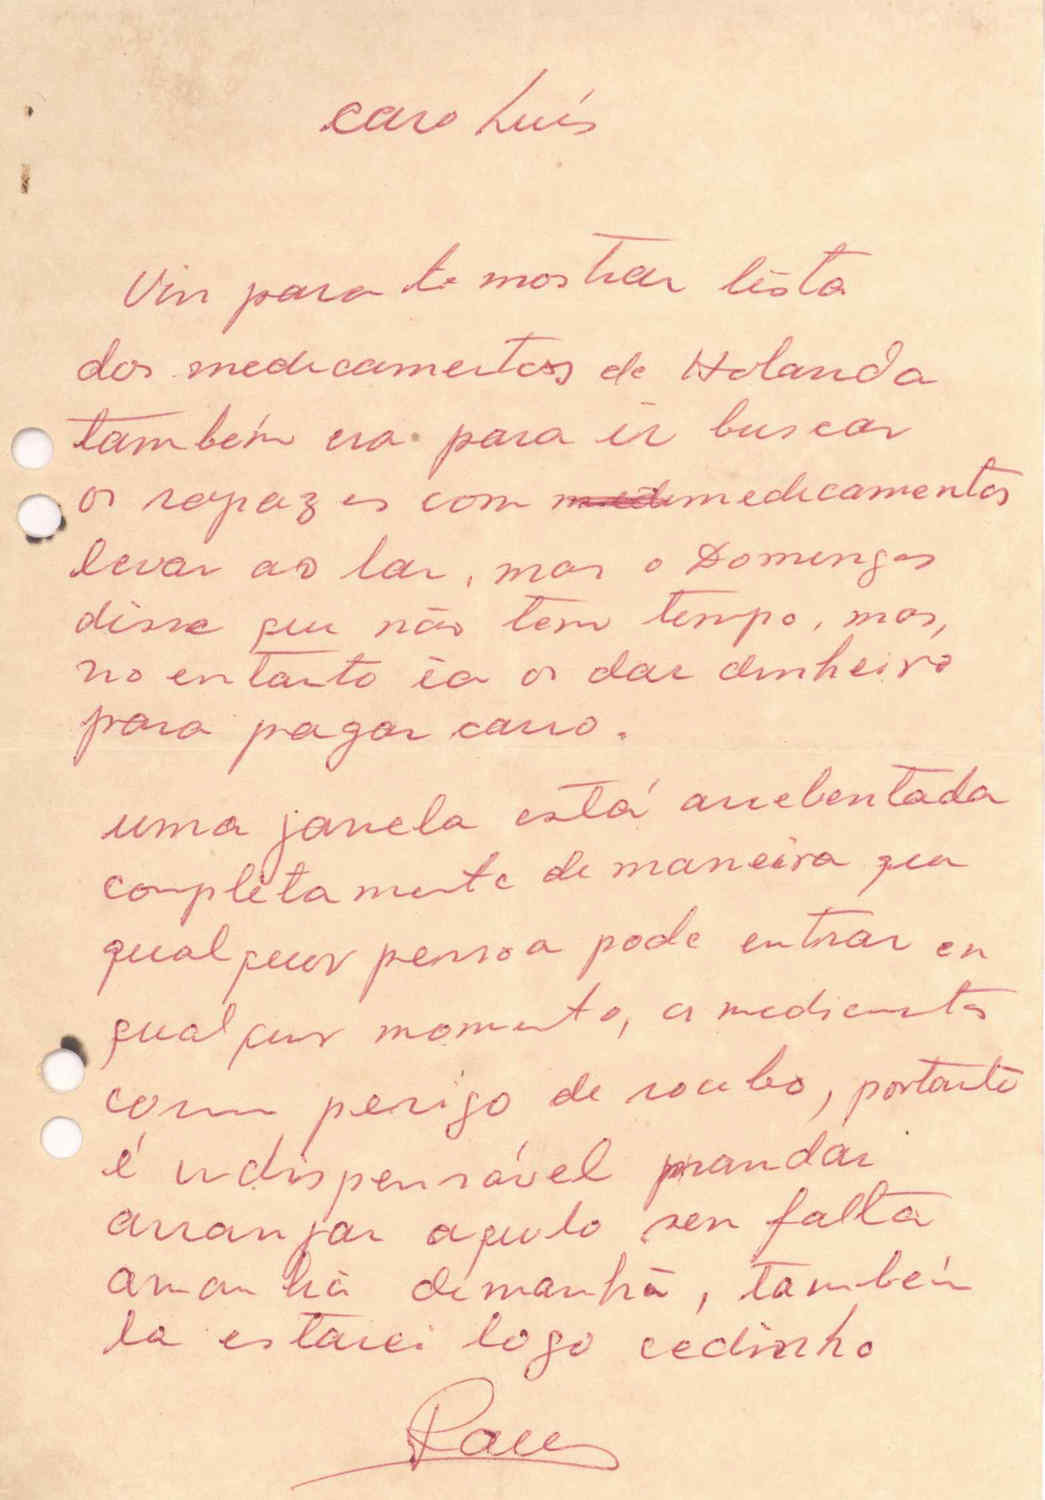 caro Luís
Vim para te mostrar lista
dos medicamentos de Holanda
também era para ir buscar
os rapazes com medicamentos
levar ao lar, mas o Domingos
disse que não tem tempo, mas,
no entanto ia os dar dinheiro
para pagar carro.
uma janela está arrebentada
completamente de maneira que
qualquer pessoa pode entrar em
qualquer momento, os medicamentos
correm perigo de roubo, portanto
é indispensável mandar
arranjar aquilo sem falta
amanhã de manhã, também
la estarei logo cedinho